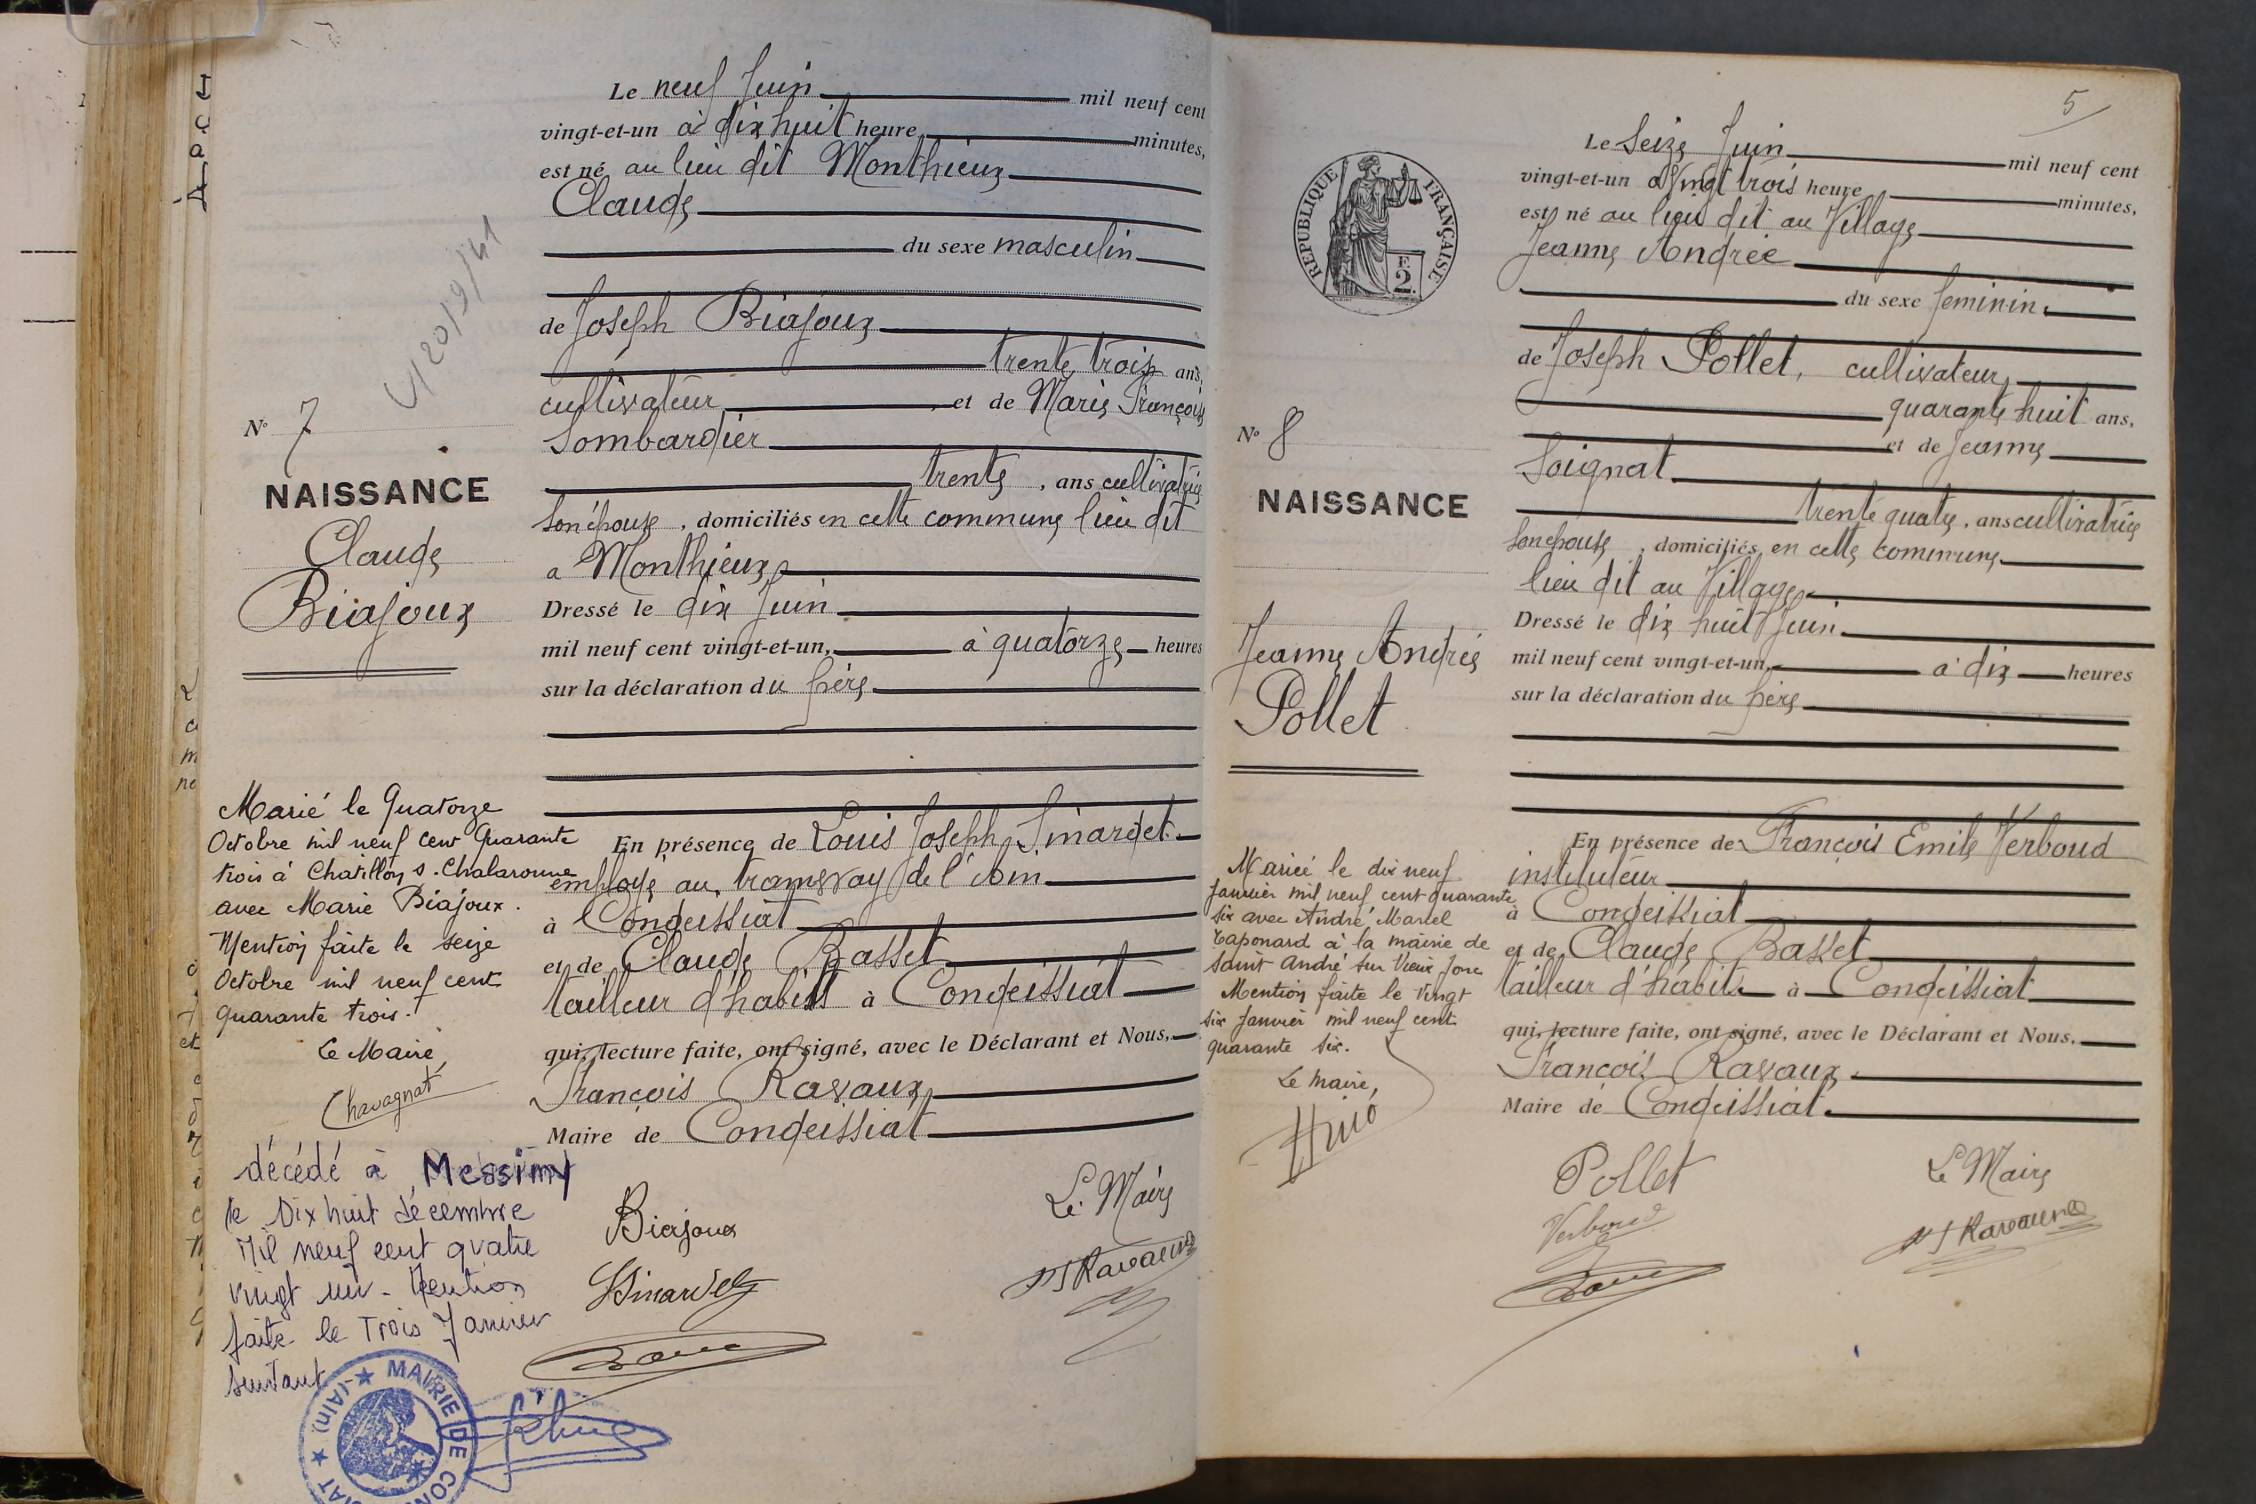 Le neuf Juin mil neuf cent
vingt-et-un à dix huit heure minutes,
est né au lieu dit Monthieux
Claude
du sexe masculin
de Joseph Biajoux
trente trois ans,
cultivateur, et de Marie Françoise
Lombardier
trente, ans cultivatrice
son épouse, domiciliés en cette commune lieu dit
a Monthieux
Dressé le dix Juin
mil neuf cent vingt-et-un, à quatorze heures
sur la déclaration du père
En présence de Louis Joseph Sinardet
employé au tramway de l'Ain
à Condeissiat
et de Claude Basset
tailleur d'habits à Condeissiat
qui, lecture faite, ont signé, avec le Déclarant et Nous,
François Ravaux
Maire de Condeissiat
Biajoux
Le Maire
Sinardet
Ravaux
V 20/9/41
N° 7
NAISSANCE
Claude
Biajoux
Marié le Quatorze
Octobre mil neuf cent Quarante
trois à Chatillon s. Chalaronne
avec Marie Biajoux.
Mention faite le seize
Octobre mil neuf cent
quarante trois.
Le Maire,
Chavagnat
décédé à Messimy
le Dix huit décembre
Mil neuf cent quatre
vingt un - Mention
faite le Trois Janvier
suivant
MAIRIE DE CON
(AIN)
5
Le Seize Juin mil neuf cent
vingt-et-un à Vingt trois heure minutes,
est né au lieu dit au Village
Jeanne Andrée
du sexe feminin
de Joseph Pollet, cultivateur
quarante huit ans,
et de Jeanne
Soignat
trente quatre, ans cultivatrice
son épouse, domiciliés en cette commune
lieu dit au Village
Dressé le dix huit Juin
mil neuf cent vingt-et-un, à dix heures
sur la déclaration du père
En présence de François Emile Verboud
instituteur
à Condeissiat
et de Claude Basset
tailleur d'habits à Condeissiat
qui, lecture faite, ont signé, avec le Déclarant et Nous,
François Ravaux
Maire de Condeissiat.
Pollet
Le Maire
Verboud
Ravaux
RÉPUBLIQUE FRANÇAISE
F.
2.
N° 8
NAISSANCE
Jeanne Andrée
Pollet
Mariée le dix neuf
Janvier mil neuf cent quarante
six avec André Marcel
Taponard à la mairie de
Saint André sur Vieux Jonc
Mention faite le vingt
six Janvier mil neuf cent
quarante six.
Le maire,